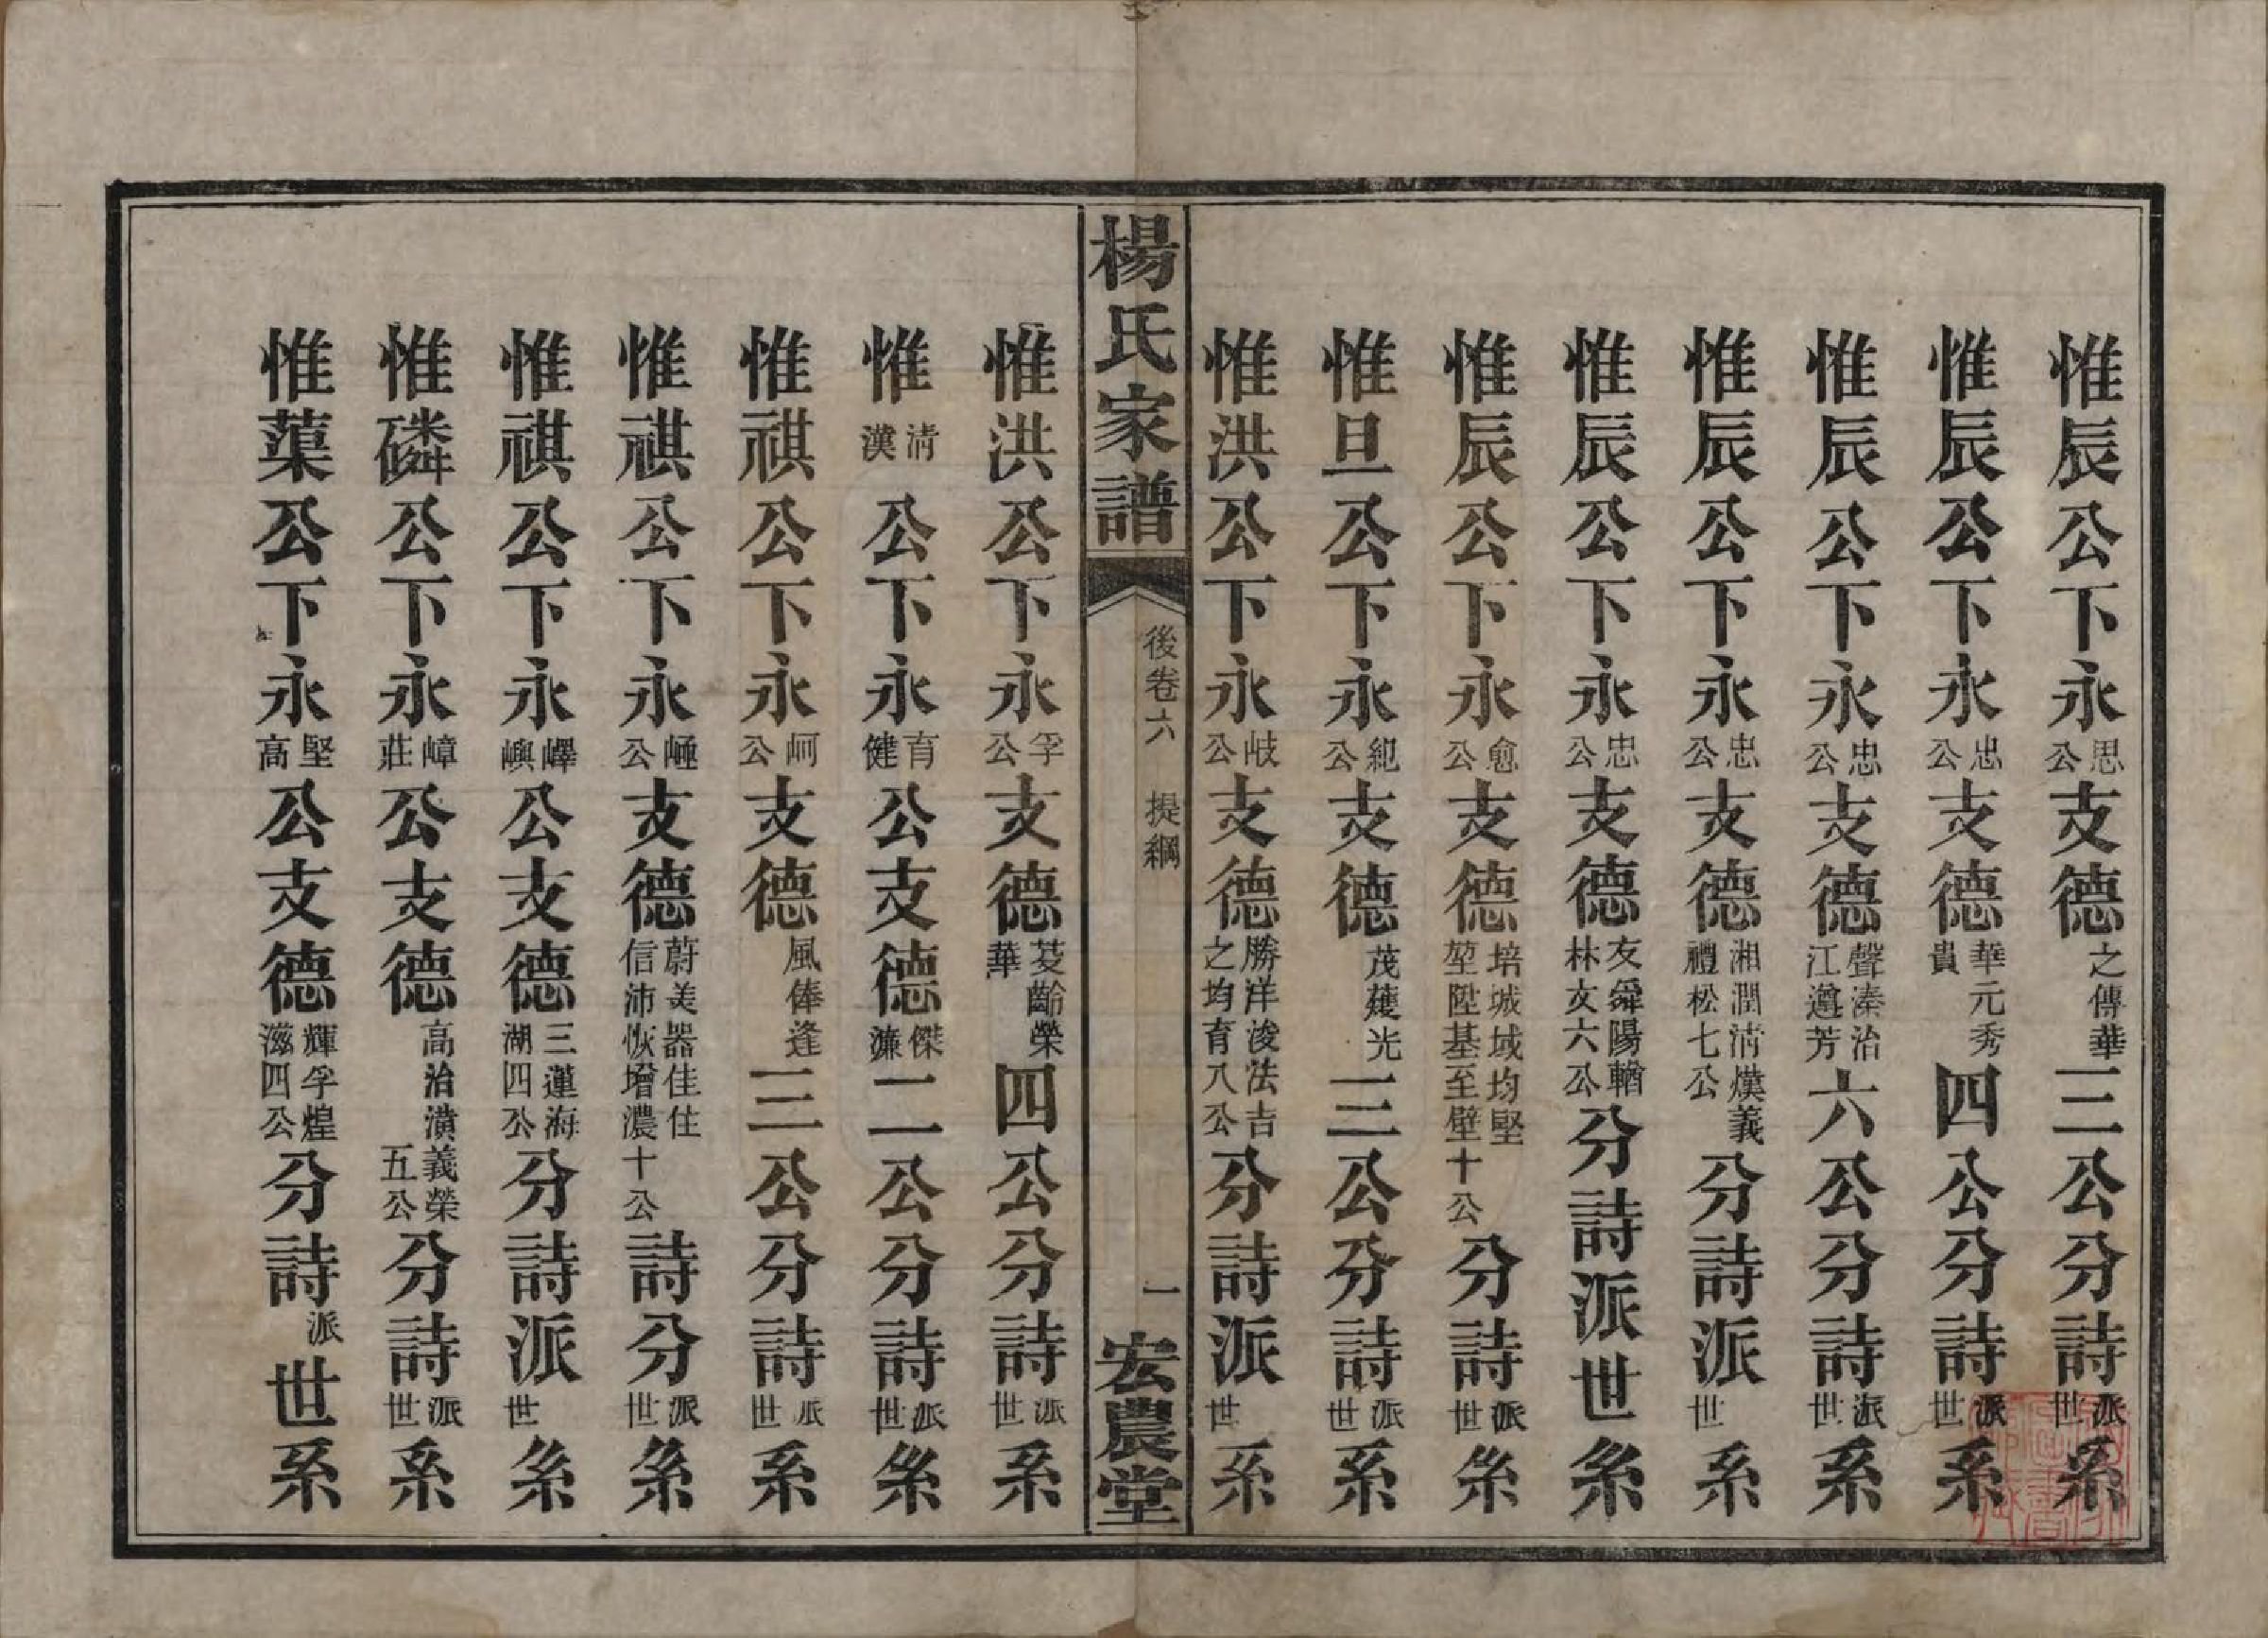 惟辰公下永思公支德之傳華三公分詩派世系
惟辰公下永忠公支德華元秀貴四公分詩派世系
惟辰公下永忠公支德聲溱治江遵芳六公分詩派世系
惟辰公下永忠公支德湘潤淸熯義禮松七公分詩派世系
惟辰公下永忠公支德友舜陽輶林文六公分詩派世系
惟辰公下永愈公支德培城域均堅堃陞基至壁十公分詩派世系
惟旦公下永紀公支德茂蘷光三公分詩派世系
惟洪公下永岐公支德勝洋浚法吉之均育八公分詩派世系
楊氏家譜
後卷六 提綱
一
宏農堂
惟洪公下永孚公支德芰齡榮華四公分詩派世系
惟淸漢公下永育健公支德傑濂二公分詩派世系
惟祺公下永岢公支德風俸逢三公分詩派世系
惟祺公下永㠉公支德蔚美器佳住信沛恢增濃十公詩分派世系
惟祺公下永嶧嶼公支德三蓮海湖四公分詩派世系
惟磷公下永嶂莊公支德高治潢義榮五公分詩派世系
惟蕖公下永堅高公支德輝孚煌滋四公分詩派世系